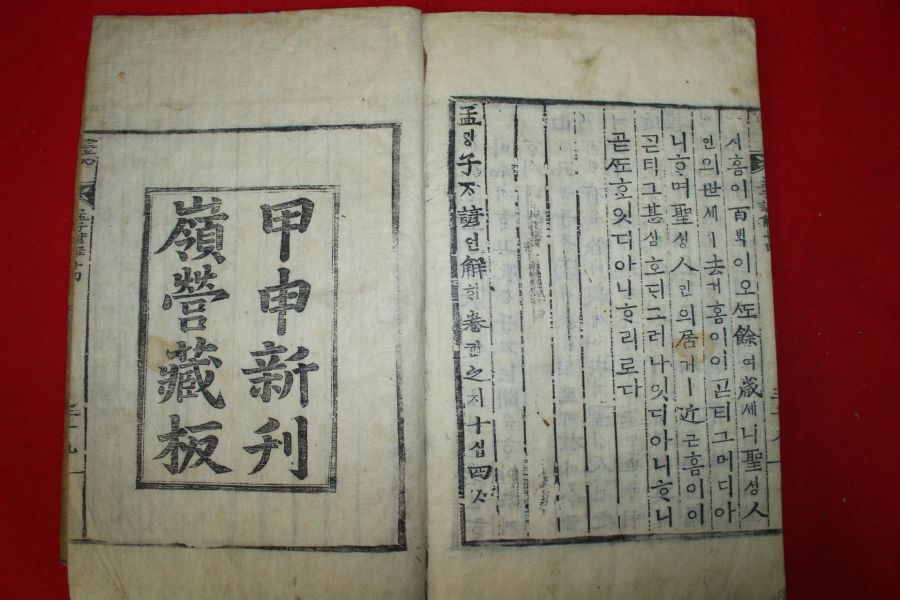 시홈이百ᄇᆡᆨ이오ᄯᅩ餘여歲셰니聖셩人
인의世셰ㅣ去거홈이이ᄀᆞᆮ티그머디아
니ᄒᆞ며聖셩人인의居거ㅣ近근홈이이
ᄀᆞᆮ티그甚심호ᄃᆡ그러나잇디아니ᄒᆞ니
곧ᄯᅩᄒᆞᆫ잇디아니ᄒᆞ리로다
孟ᄆᆡᆼ子ᄌᆞ諺언解ᄒᆡ卷권之지十십四ᄉᆞ
甲申新刊
嶺營藏板